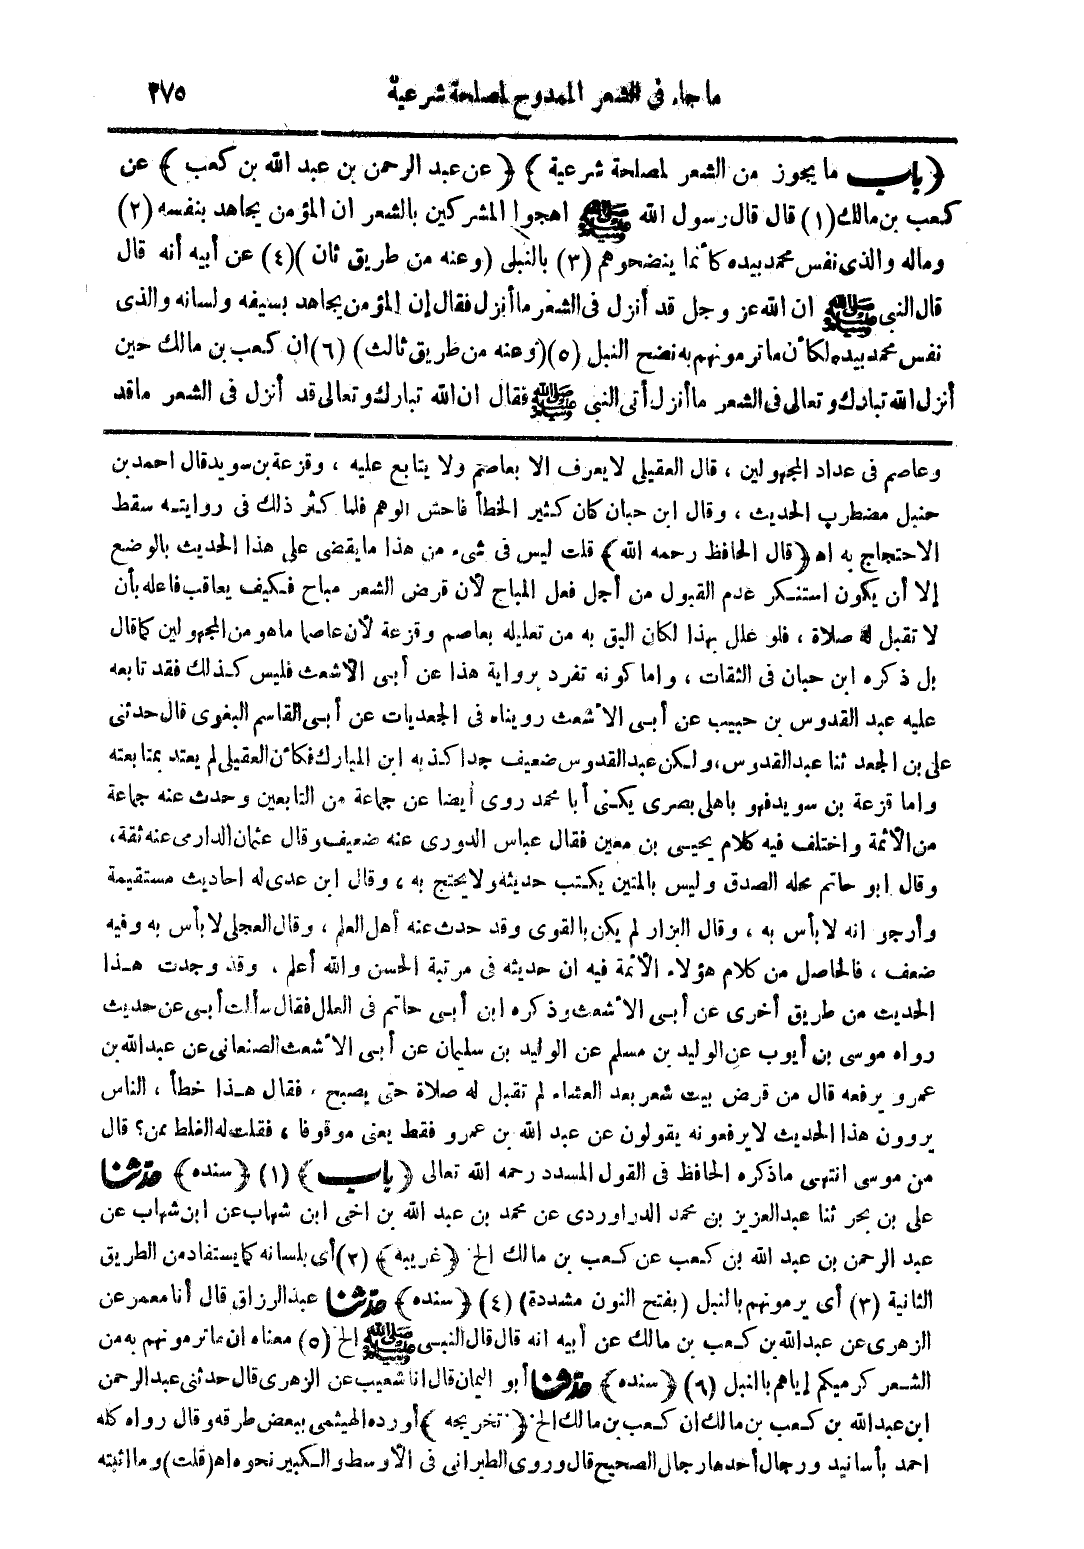 ما جاء في الشعر الممدوح لمصلحة شرعية ٢٧٥
﴿ باب ما يجوز من الشعر لمصلحة شرعية ﴾ ﴿ عن عبد الرحمن بن عبد الله بن كعب ﴾ عن
كعب بن مالك (١) قال قال رسول الله ﷺ اهجوا المشركين بالشعر ان المؤمن يجاهد بنفسه (٢)
وماله والذى نفس محمد بيده كأنما ينضحوهم (٣) بالنبل (وعنه من طريق ثان) (٤) عن أبيه أنه قال
قال النبي ﷺ ان الله عز وجل قد أنزل فى الشعر ما أنزل فقال إن المؤمن يجاهد بسيفه ولسانه والذى
نفس محمد بيده لكأن ما ترمونهم به نضح النبل (٥) (وعنه من طريق ثالث) (٦) ان كعب بن مالك حين
أنزل الله تبارك وتعالى فى الشعر ما أنزل أتى النبي ﷺ فقال ان الله تبارك وتعالى قد أنزل فى الشعر ما قد
وعاصم فى عداد المجهولين ، قال العقيلى لا يعرف الا بعاصم ولا يتابع عليه ، وقزعة بن سويد قال احمد بن
حنبل مضطرب الحديث ، وقال ابن حبان كان كثير الخطأ فاحش الوهم فلما كثر ذلك فى روايته سقط
الاحتجاج به اه ﴿ قال الحافظ رحمه الله ﴾ قلت ليس فى شىء من هذا ما يقضى على هذا الحديث بالوضع
إلا أن يكون استنكر عدم القبول من أجل فعل المباح لأن قرض الشعر مباح فكيف يعاقب فاعله بأن
لا تقبل له صلاة ، فلو علل بهذا لكان اليق به من تعليله بعاصم وقزعة لأن عاصما ما هو من المجهولين كما قال
بل ذكره ابن حبان فى الثقات ، واما كونه تفرد برواية هذا عن أبى الأشعث فليس كذلك فقد تابعه
عليه عبد القدوس بن حبيب عن أبى الأشعث رويناه فى الجعديات عن أبى القاسم البغوى قال حدثنى
على بن الجعد ثنا عبد القدوس، ولكن عبد القدوس ضعيف جدا كذبه ابن المبارك فكأن العقيلى لم يعتد بمتابعته
واما قزعة بن سويد فهو باهلى بصرى يكنى أبا محمد روى أيضا عن جماعة من التابعين وحدث عنه جماعة
من الأئمة واختلف فيه كلام يحيى بن معين فقال عباس الدورى عنه ضعيف وقال عثمان الدارمى عنه ثقة ،
وقال ابو حاتم محله الصدق وليس بالمتين يكتب حديثه ولا يحتج به ، وقال ابن عدى له احاديث مستقيمة
وأرجو انه لا بأس به ، وقال البزار لم يكن بالقوى وقد حدث عنه أهل العلم ، وقال العجلى لا بأس به وفيه
ضعف ، فالحاصل من كلام هؤلاء الأئمة فيه ان حديثه فى مرتبة الحسن والله أعلم ، وقد وجدت هذا
الحديث من طريق أخرى عن أبى الأشعث وذكره ابن أبى حاتم فى العلل فقال سألت أبى عن حديث
رواه موسى بن أيوب عن الوليد بن مسلم عن الوليد بن سليمان عن أبى الأشعث الصنعانى عن عبد الله بن
عمرو يرفعه قال من قرض بيت شعر بعد العشاء لم تقبل له صلاة حتى يصبح ، فقال هذا خطأ ، الناس
يروون هذا الحديث لا يرفعونه يقولون عن عبد الله بن عمرو فقط يعنى موقوفا ، فقلت له الغلط ممن؟ قال
من موسى انتهى ما ذكره الحافظ فى القول المسدد رحمه الله تعالى ﴿ باب ﴾ (١) ﴿ سنده ﴾ حدثنا
على بن بحر ثنا عبد العزيز بن محمد الدراوردى عن محمد بن عبد الله بن اخى ابن شهاب عن ابن شهاب عن
عبد الرحمن بن عبد الله بن كعب عن كعب بن مالك الخ ﴿ غريبه ﴾ (٢) أى بلسانه كما يستفاد من الطريق
الثانية (٣) أى يرمونهم بالنبل (بفتح النون مشددة) (٤) ﴿ سنده ﴾ حدثنا عبد الرزاق قال أنا معمر عن
الزهرى عن عبد الله بن كعب بن مالك عن أبيه انه قال قال النبى ﷺ الخ (٥) معناه ان ما ترمونهم به من
الشعر كرميكم إياهم بالنبل (٦) ﴿ سنده ﴾ حدثنا أبو اليمان قال انا شعيب عن الزهرى قال حدثنى عبد الرحمن
ابن عبد الله بن كعب بن مالك ان كعب بن مالك الخ ﴿ تخريجه ﴾ أورده الهيثمى ببعض طرقه وقال رواه كله
احمد بأسانيد ورجال أحدها رجال الصحيح قال وروى الطبرانى فى الأوسط والكبير نحوه اه (قلت) وما اثبته